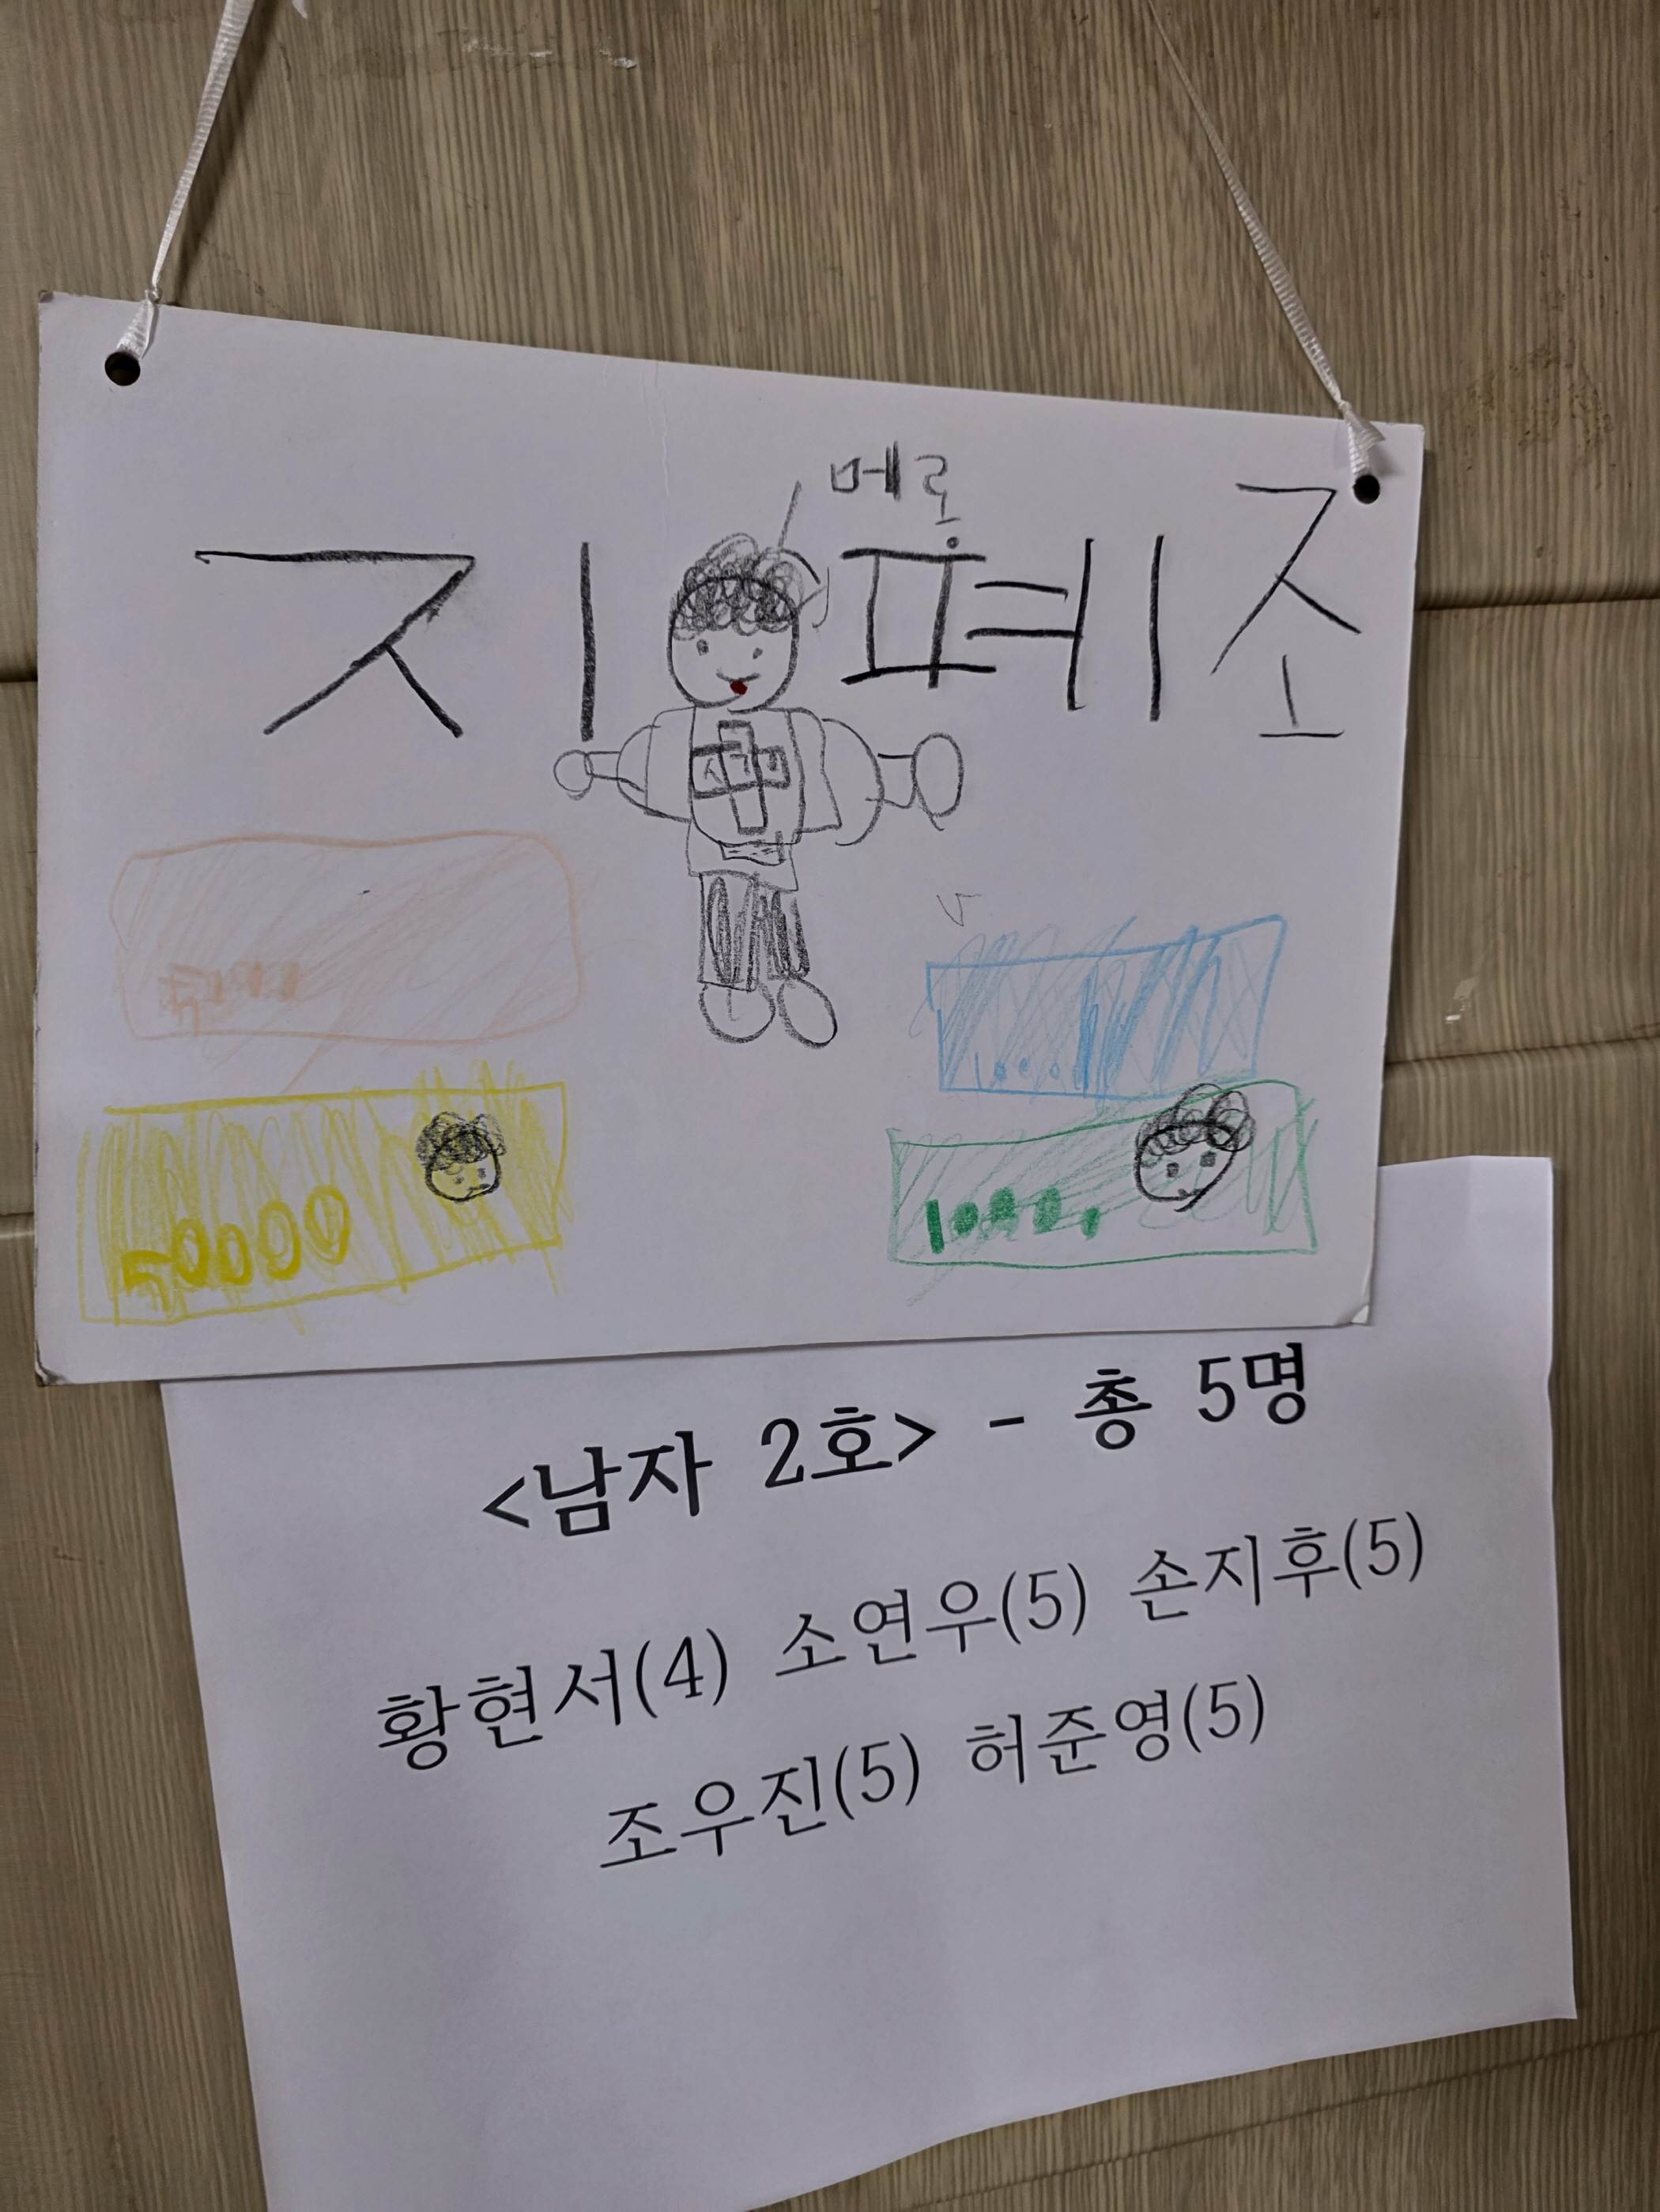 메롱
지폐조
50000
<남자 2호> - 총 5명
황현서(4) 소연우(5) 손지후(5)
조우진(5) 허준영(5)